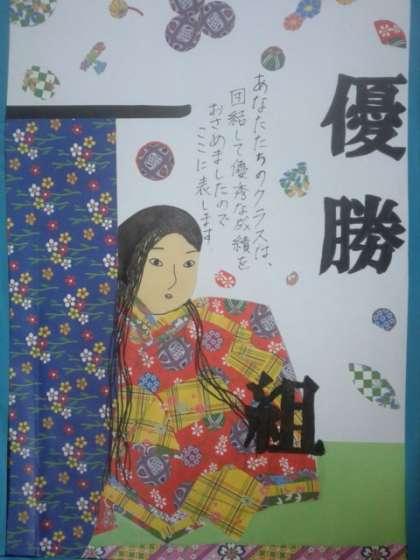 優勝
あなたたちのクラスは、
団結して優秀な成績を
おさめましたので
ここに表します
組